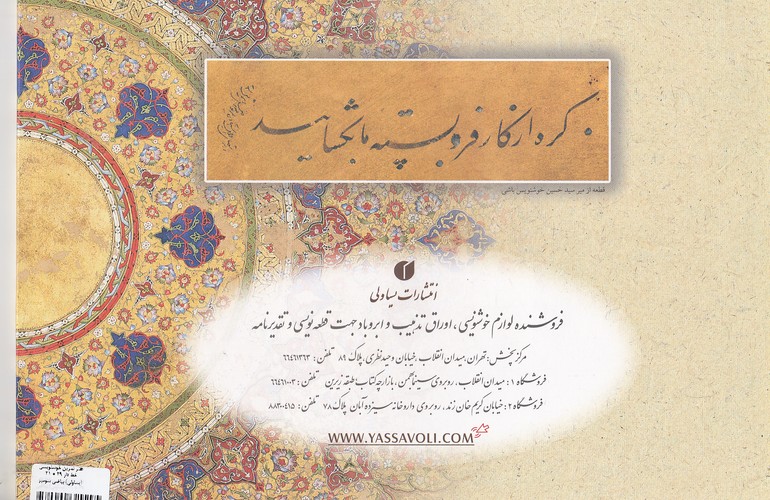 گره از کار فروبسته ما بگشایید
قطعه از میر سید حسین خوشنویس باشی
انتشارات یساولی
فروشنده لوازم خوشنویسی، اوراق تذهیب و ابروباد جهت قطعه نویسی و تقدیرنامه
مرکز پخش: تهران، میدان انقلاب، خیابان وحید نظری، پلاک ۸۹ تلفن: ۶۶۴۶۱۳۶۳
فروشگاه ۱: میدان انقلاب، روبروی سینما بهمن، بازارچه کتاب طبقه زیرین تلفن: ۶۶۴۶۱۰۰۳
فروشگاه ۲: خیابان کریم خان زند، روبروی داروخانه سیزده آبان پلاک ۷۸ تلفن: ۸۸۳۰۰۴۱۵
WWW.YASSAVOLI.COM
دفتر تمرین خوشنویسی
خط دار ۲۹ * ۲۱
(یساولی) بیاضی سیمی